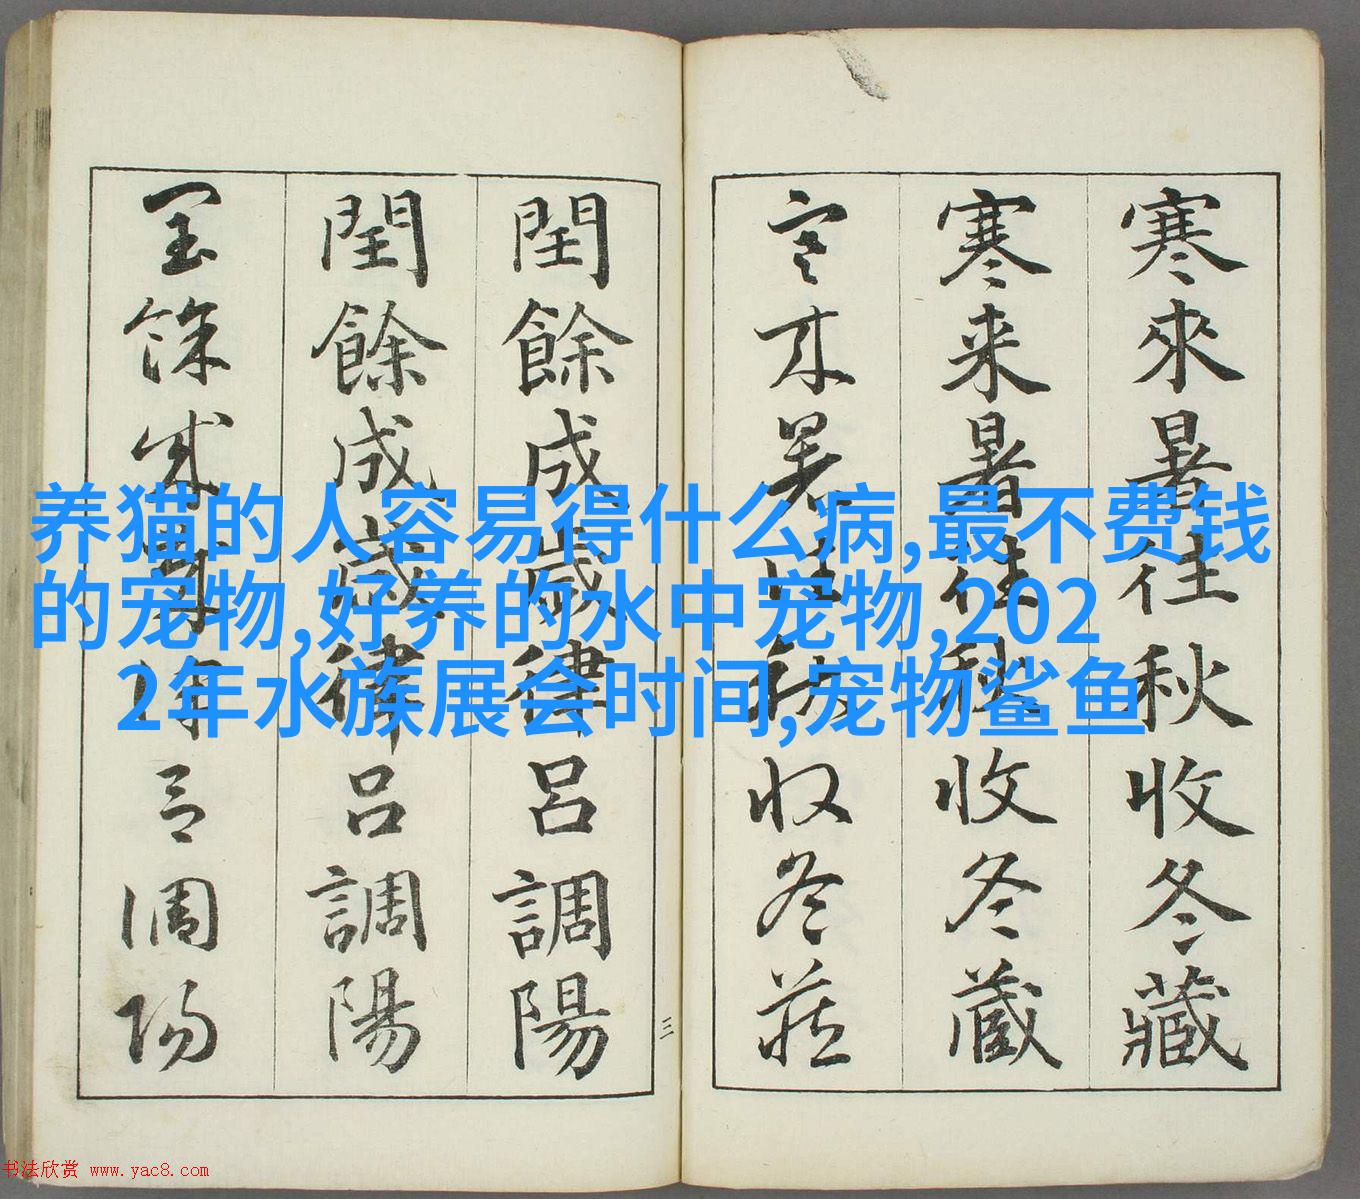 寒來暑往秋收冬藏
寒来暑往秋收冬蔵
閏餘成歲律呂調陽
閏餘成歲律呂調陽
三
养猫的人容易得什么病,最不费钱
的宠物,好养的水中宠物,202
2年水族展会时间,宠物鲨鱼
书法欣赏 www.yac8.com